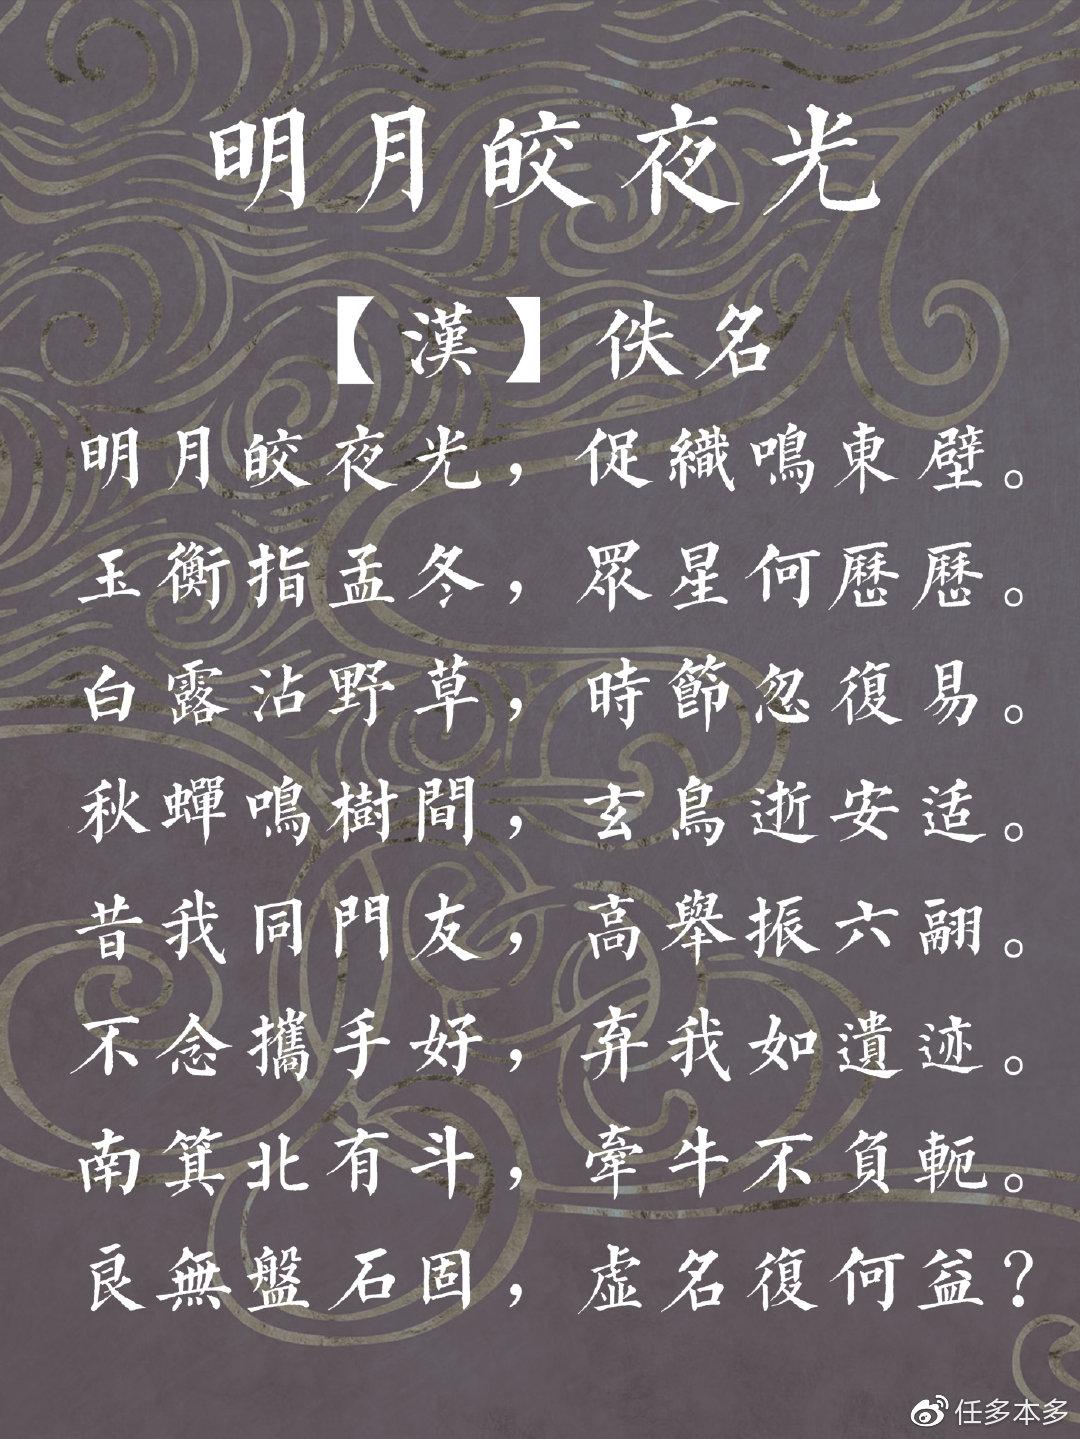 明月皎夜光
【漢】佚名
明月皎夜光，促織鳴東壁。
玉衡指孟冬，眾星何歷歷。
白露沾野草，時節忽復易。
秋蟬鳴樹間，玄鳥逝安适。
昔我同門友，高舉振六翮。
不念攜手好，弃我如遺迹。
南箕北有斗，牽牛不負軛。
良無盤石固，虛名復何益？
任多本多